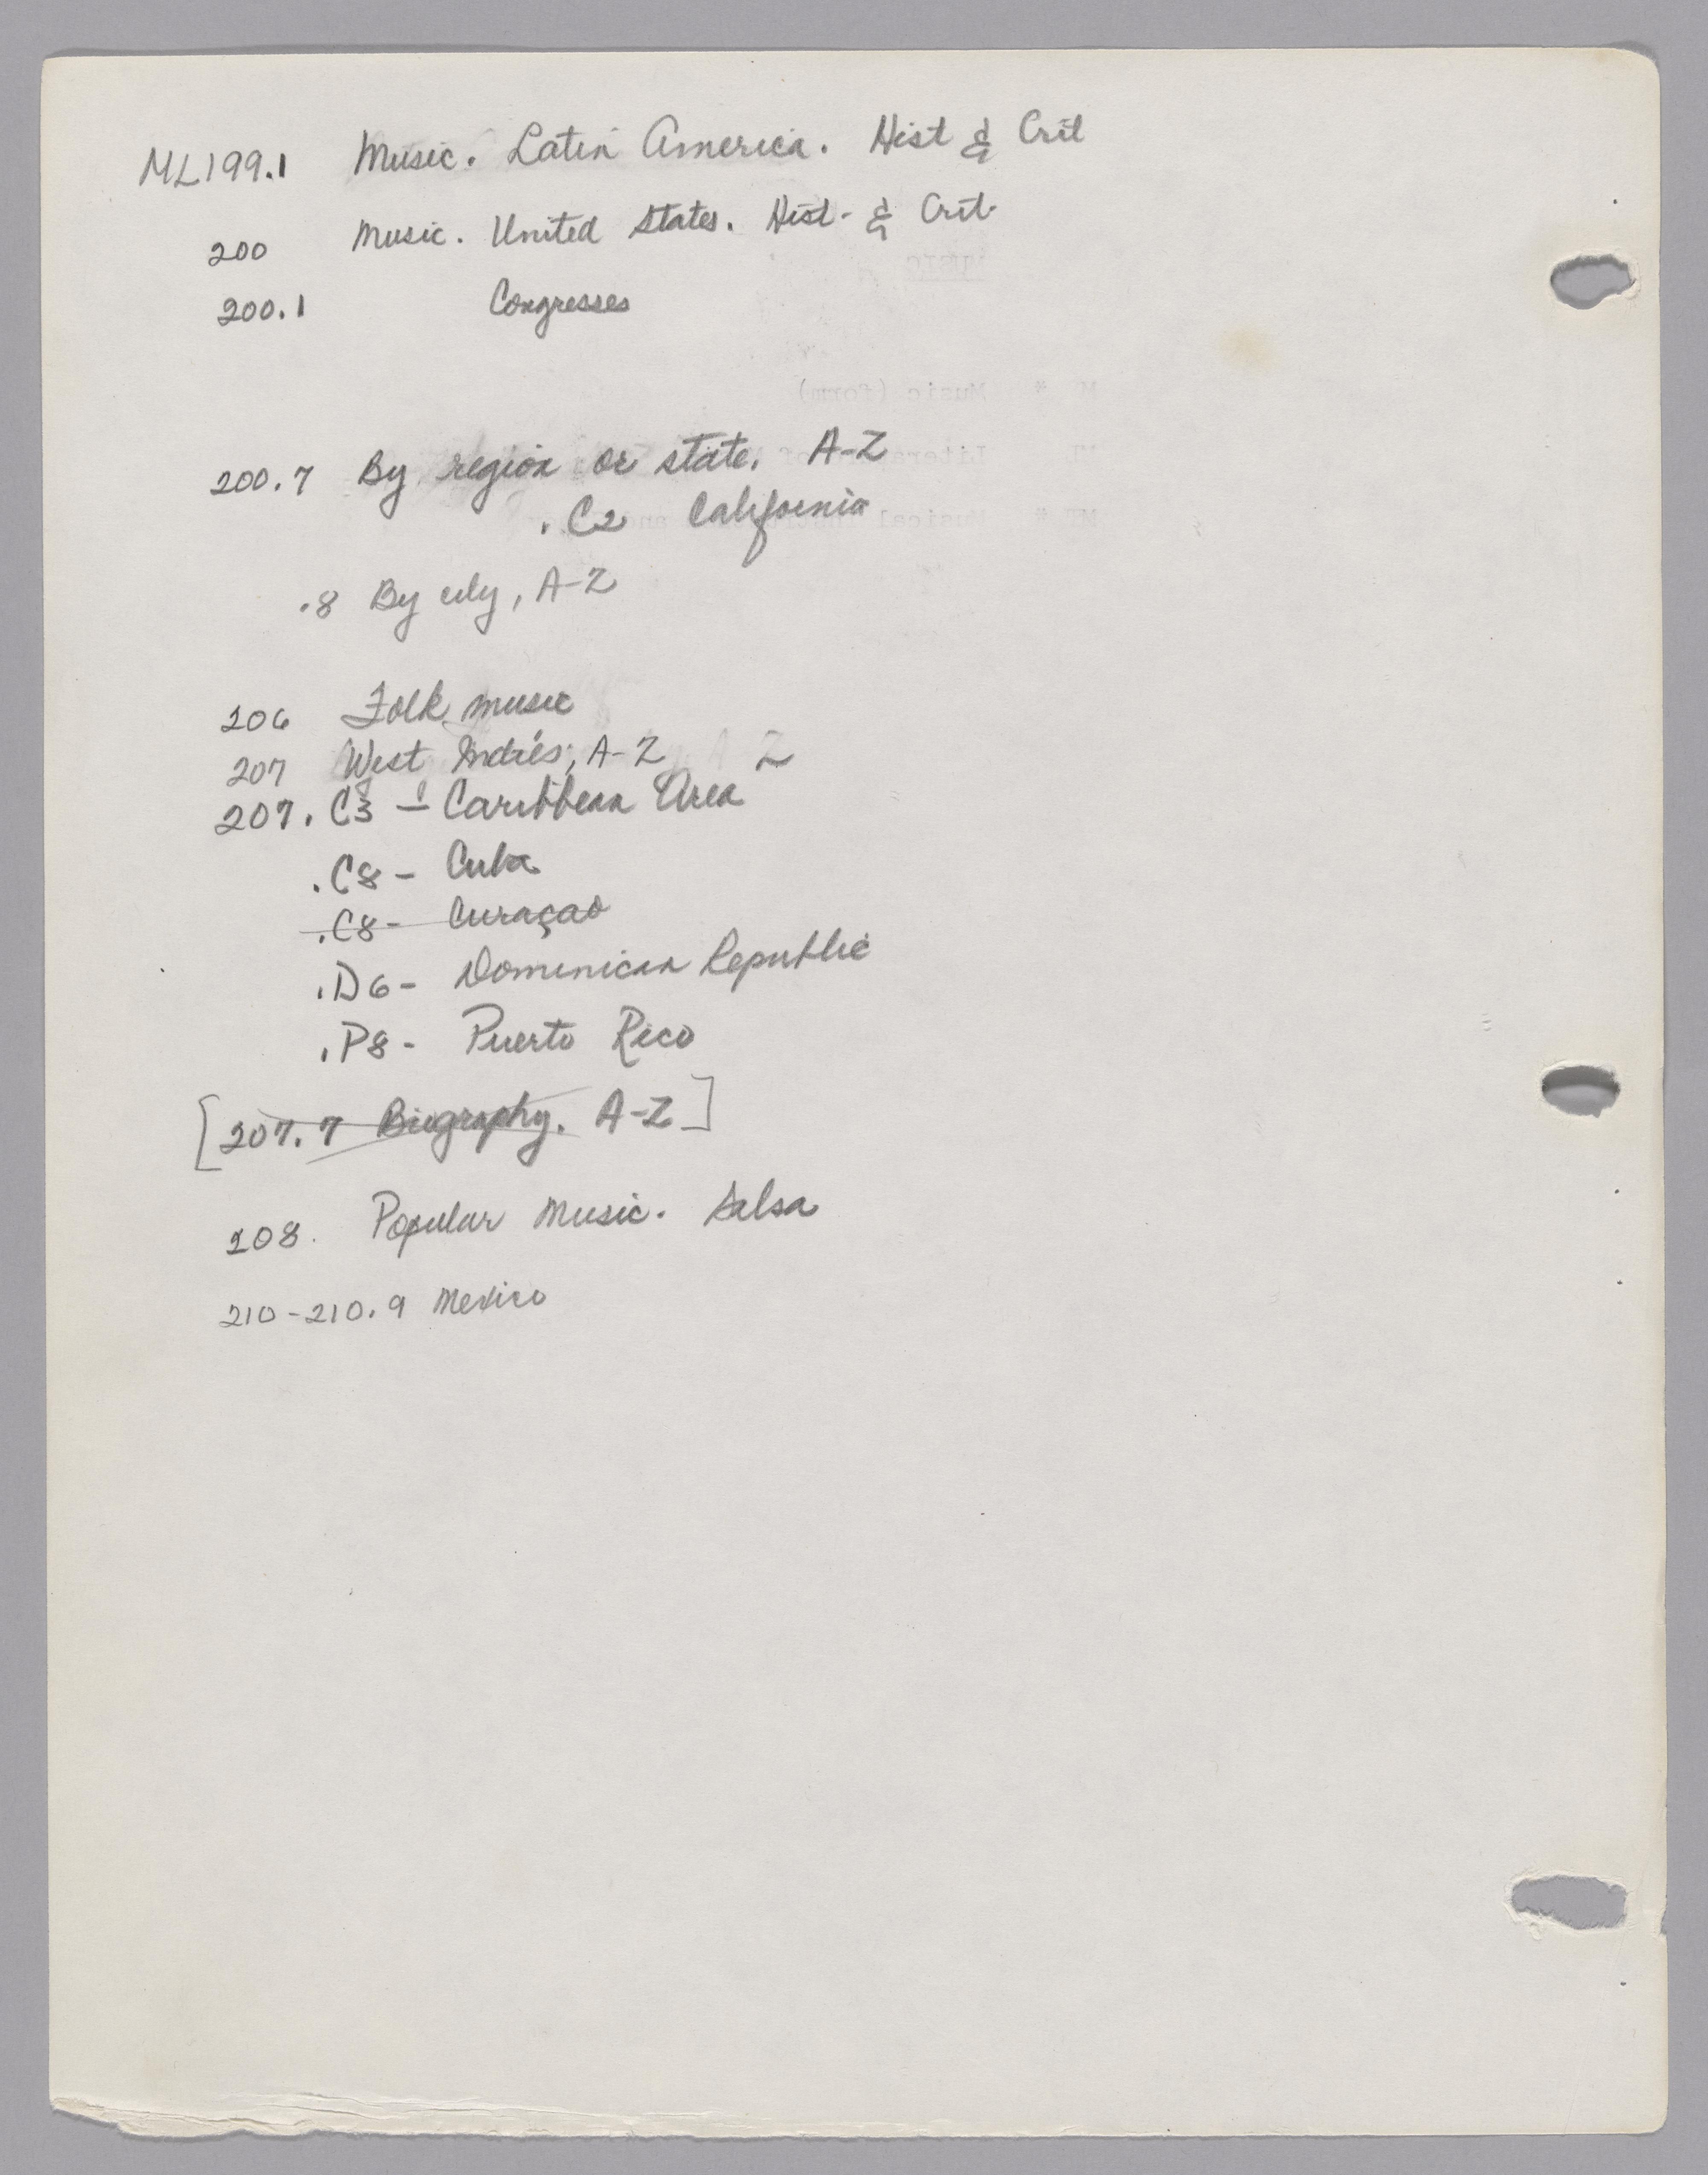 ML199.1 Music. Latin America. Hist & Crit
200 Music. United States. Hist. & Crit.
200.1 Congresses
200.7 By region or state, A-Z
.C2 California
.8 By city, A-Z
206 Folk music
207 West Indies, A-Z
207.C3 - Caribbean Area
.C8 - Cuba
.C8- Curaçao
.D6- Dominican Republic
.P8- Puerto Rico
[207.7 Biography. A-Z]
208. Popular Music. Salsa
210-210.9 Mexico